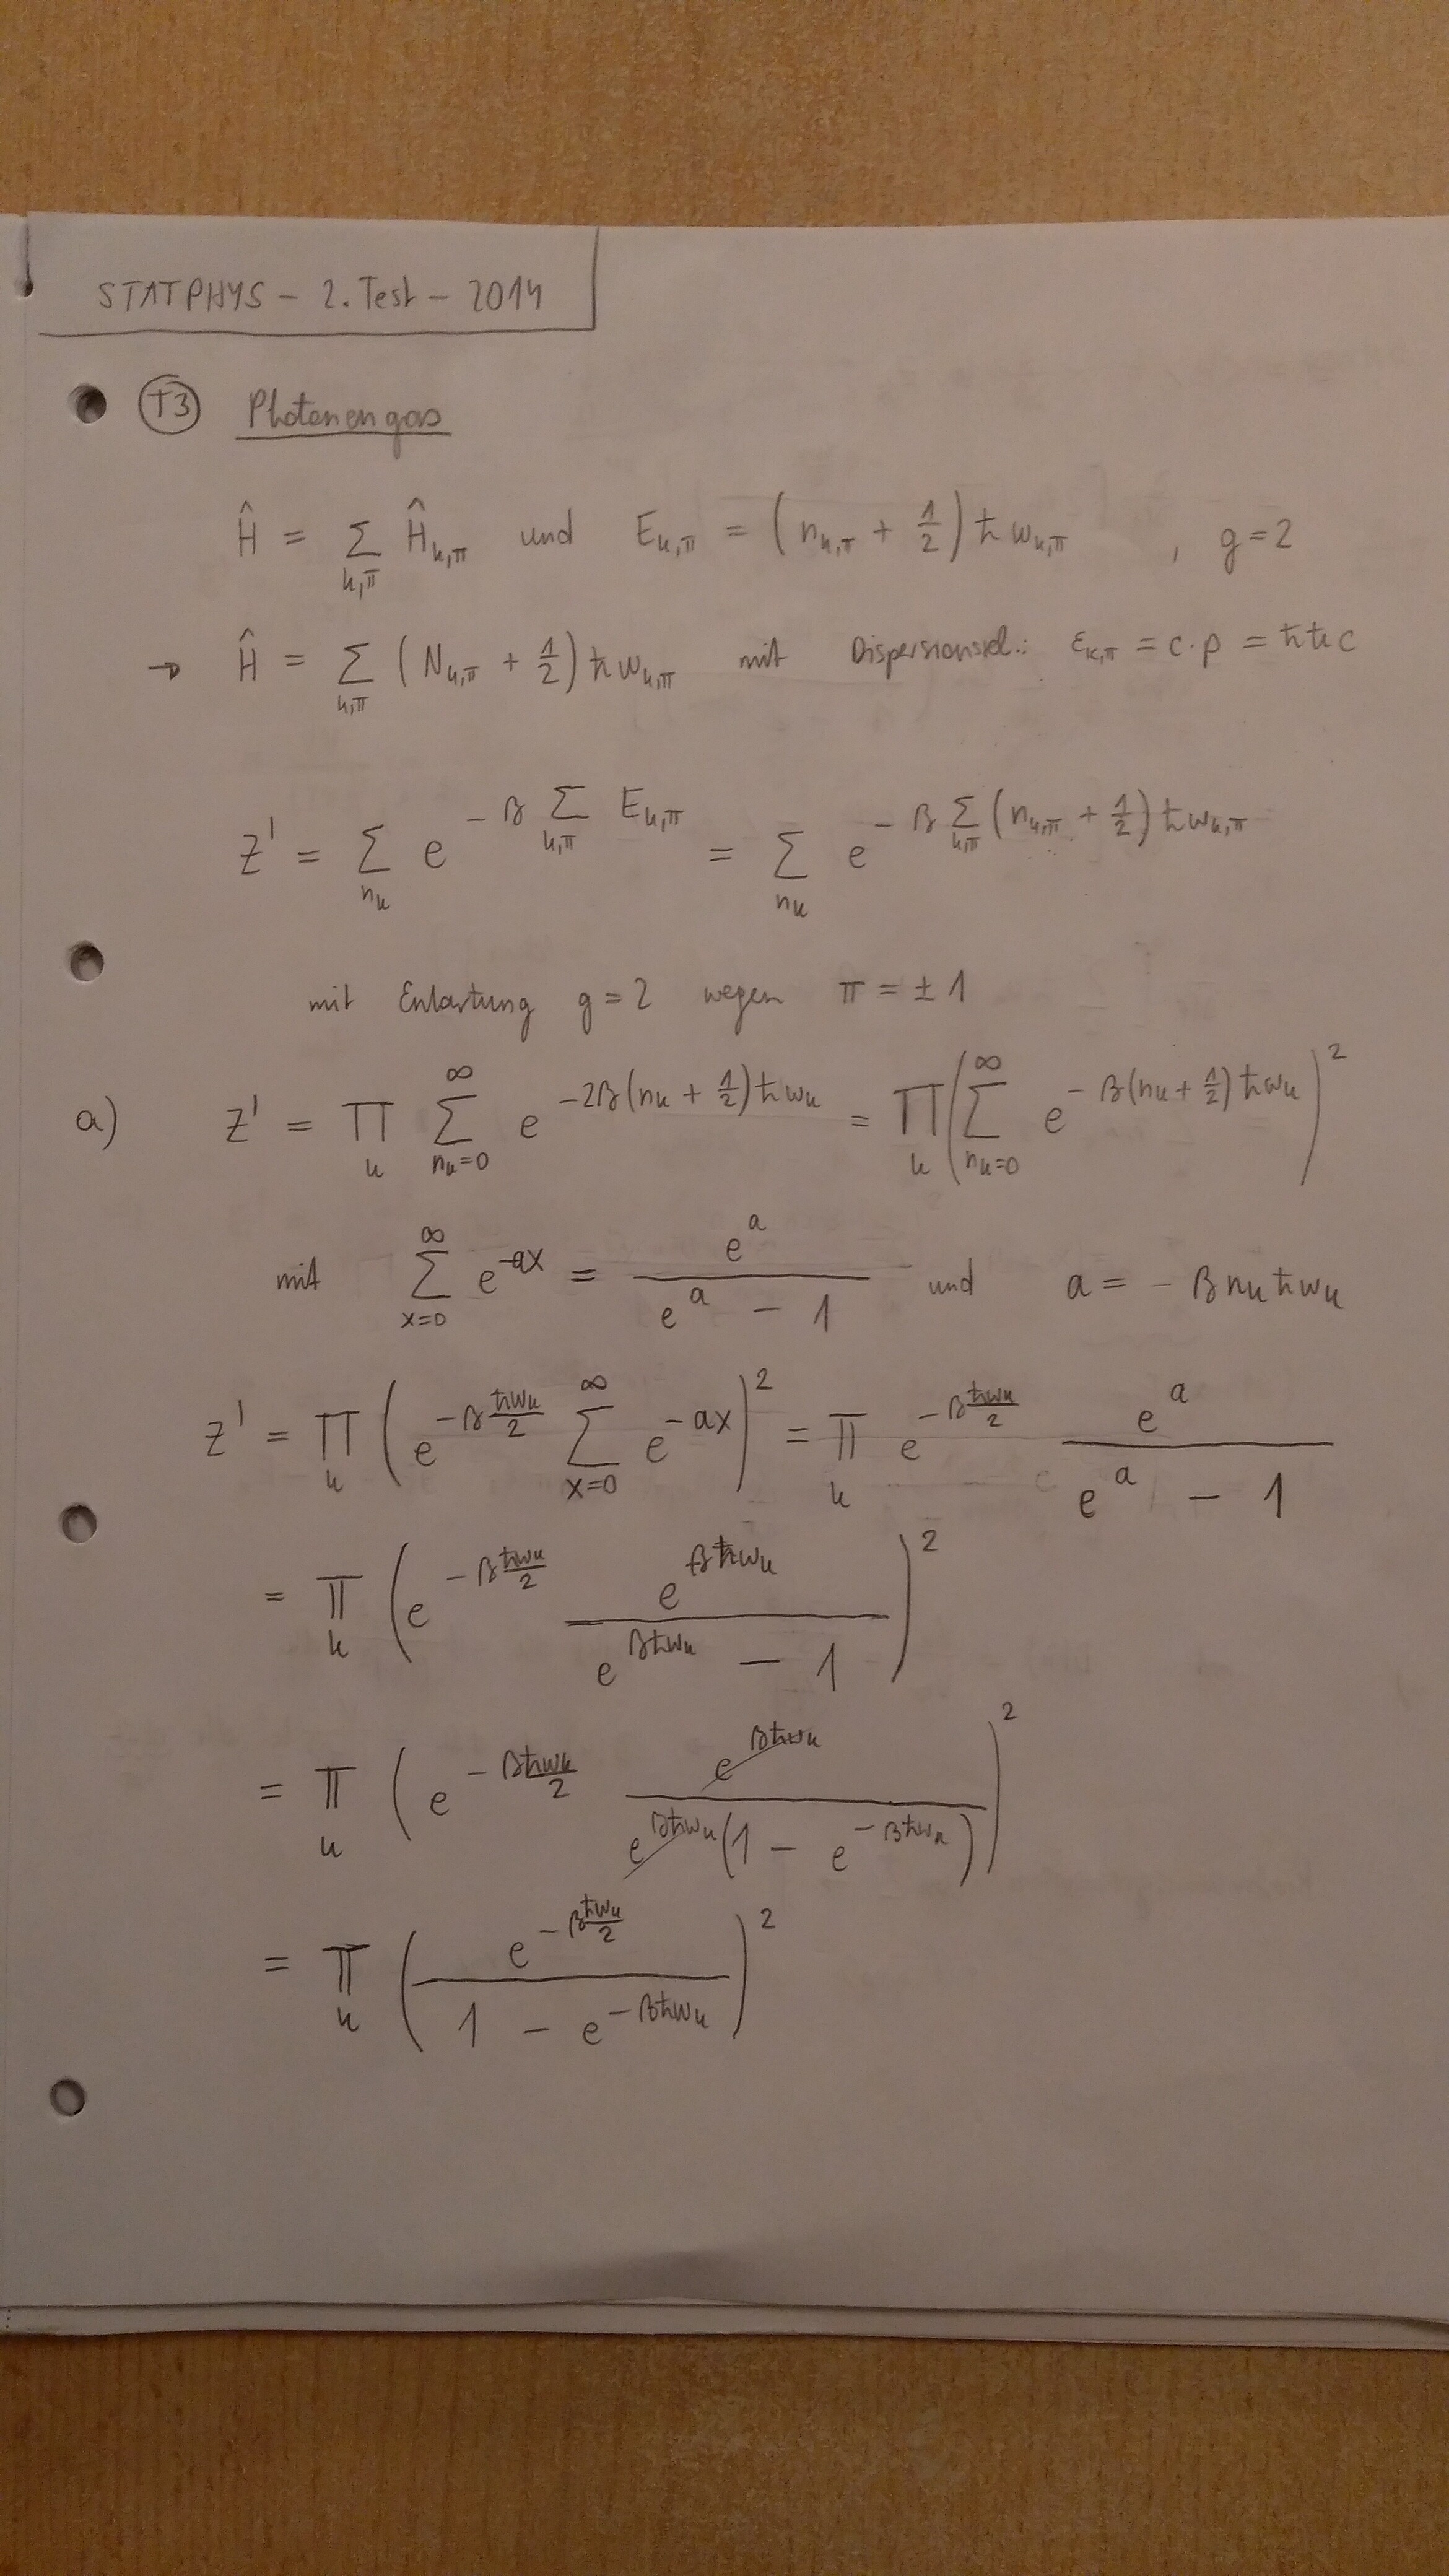 STATPHYS – 2. Test – 2014
T3 Photonengas
Ĥ = ∑_{k,π} Ĥ_{k,π} und E_{k,π} = (n_{k,π} + 1/2) ħω_{k,π} , g=2
→ Ĥ = ∑_{k,π} (N_{k,π} + 1/2) ħω_{k,π} mit Dispersionsrel.: ε_{k,π} = c·p = ħkc
Z' = ∑_{n_k} e^{-β ∑_{k,π} E_{k,π}} = ∑_{n_k} e^{-β ∑_{k,π} (n_{k,π} + 1/2) ħω_{k,π}}
mit Entartung g=2 wegen π = ±1
a) Z' = ∏_k ∑_{n_k=0}^{∞} e^{-2β(n_k + 1/2)ħω_k} = ∏_k (∑_{n_k=0}^{∞} e^{-β(n_k + 1/2)ħω_k})^2
mit ∑_{x=0}^{∞} e^{-ax} = e^a / (e^a – 1) und a = - β n_k ħω_k
Z' = ∏_k (e^{-β ħω_k/2} ∑_{x=0}^{∞} e^{-ax})^2 = ∏_k e^{-β ħω_k/2} e^a / (e^a – 1)
= ∏_k (e^{-β ħω_k/2} e^{βħω_k} / (e^{βħω_k} – 1))^2
= ∏_k (e^{-βħω_k/2} e^{βħω_k} / (e^{βħω_k}(1 – e^{-βħω_k})))^2
= ∏_k (e^{-β ħω_k/2} / (1 – e^{-βħω_k}))^2